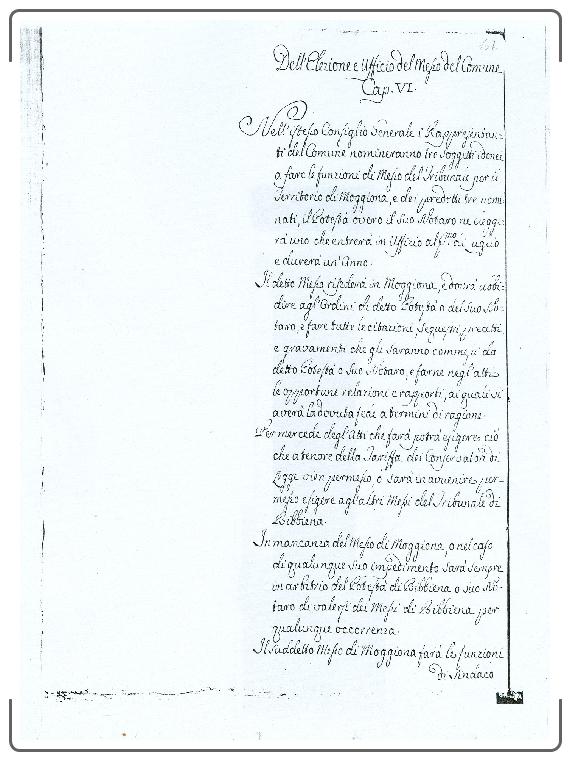 Dell'Elezione e Ufficio del Meßo del Comune
Cap. VI.
Nell'isteßo Consiglio Generale i Rappresentan-
ti del Comune nomineranno tre soggetti idonei
a fare le funzioni di Meßo del Tribunale per il
Territorio di Moggiona, e dei predetti tre nomi-
nati, il Potestà overo il suo Notaro ne eleggie-
rà uno che entrerà in Uffizio al pmo. di Luglio
e durerà un'Anno.
Il detto Meßo risederà in Moggiona, e dovrà ubi-
dire agl'Ordini di detto Potestà o del suo No-
taro, e fare tutte le citazioni, sequestri, precetti
e gravamenti che gli saranno commeßi da
detto Potestà o suo Notaro, e farne negl'atti
le opportune relazioni e rapporti, ai quali si
averà la dovuta fede a termini di ragione.
Per mercede degl'Atti che farà potrà esigere ciò
che a tenore della Tariffa dei Conservatori di
Leggi vien permeßo o sarà in avvenire per-
meßo esigere agl'altri Meßi del Tribunale di
Bibbiena.
In mancanza del Meßo di Moggiona, o nel caso
di qualunque suo impedimento sarà sempre
in arbitrio del Potestà di Bibbiena o suo No-
taro di valersi dei Meßi di Bibbiena per
qualunque occorrenza.
Il suddetto Meßo di Moggiona farà le funzioni
di Sindaco